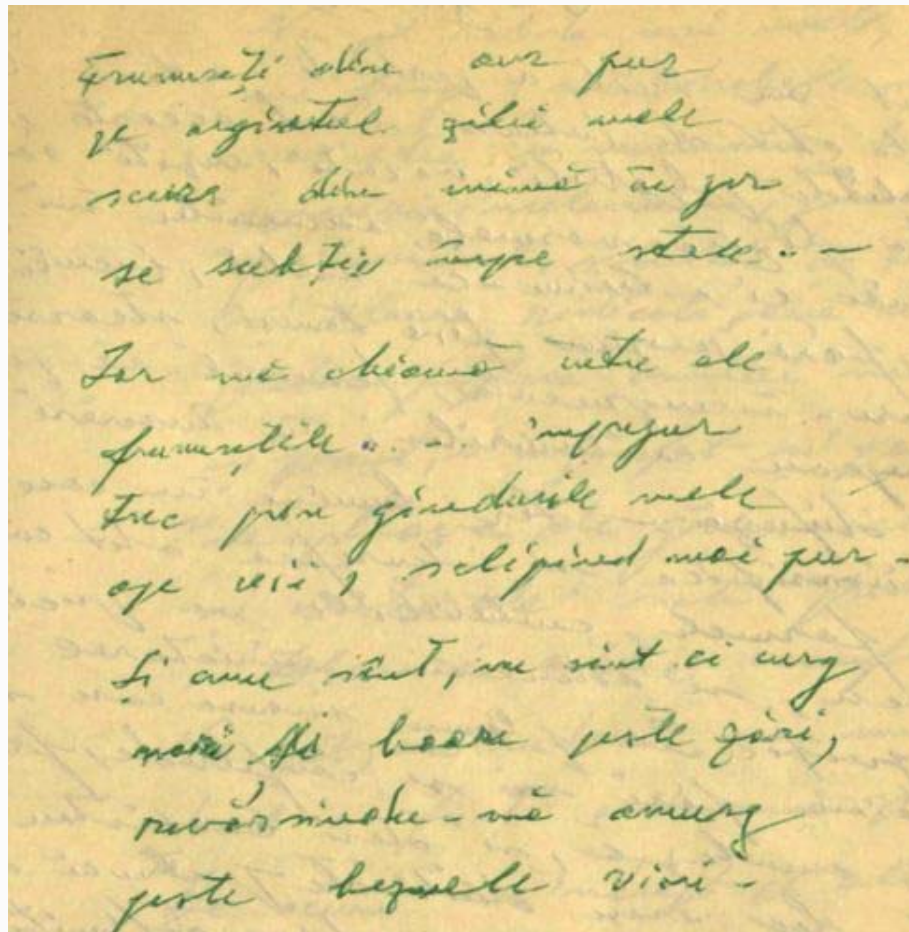 Frumuseți din aur pur
V argintul zilei mele
scurs din inimă în jur
se subție înspre stele. . –
Iar mă chiamă între ele
frumusețile . . – împrejur
trec prin gîndurile mele
ape vii, sclipind mai pur –
Și cum sînt, nu sînt ci curg
peste țări,
revărsîndu-mă amurg
peste beznele